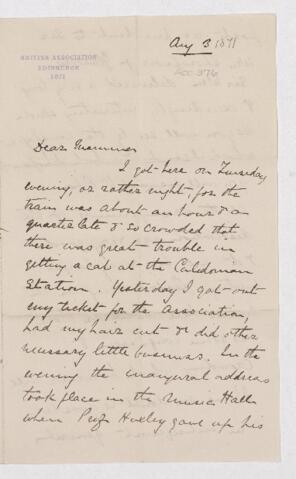 BRITISH ASSOCIATION
EDINBURGH
1871
Aug 3 1871
Acc 376
Dear Mamma
I got here on Tuesday
evening, or rather night, for the
train was about an hour & a
quarter late & so crowded that
there was great trouble in
getting a cab at the Caledonian
Station. Yesterday I got out
my ticket for the Association,
had my hair cut & did other
necessary little business. In the
evening the inaugural address
took place in the Music Hall
when Prof Huxley gave up his